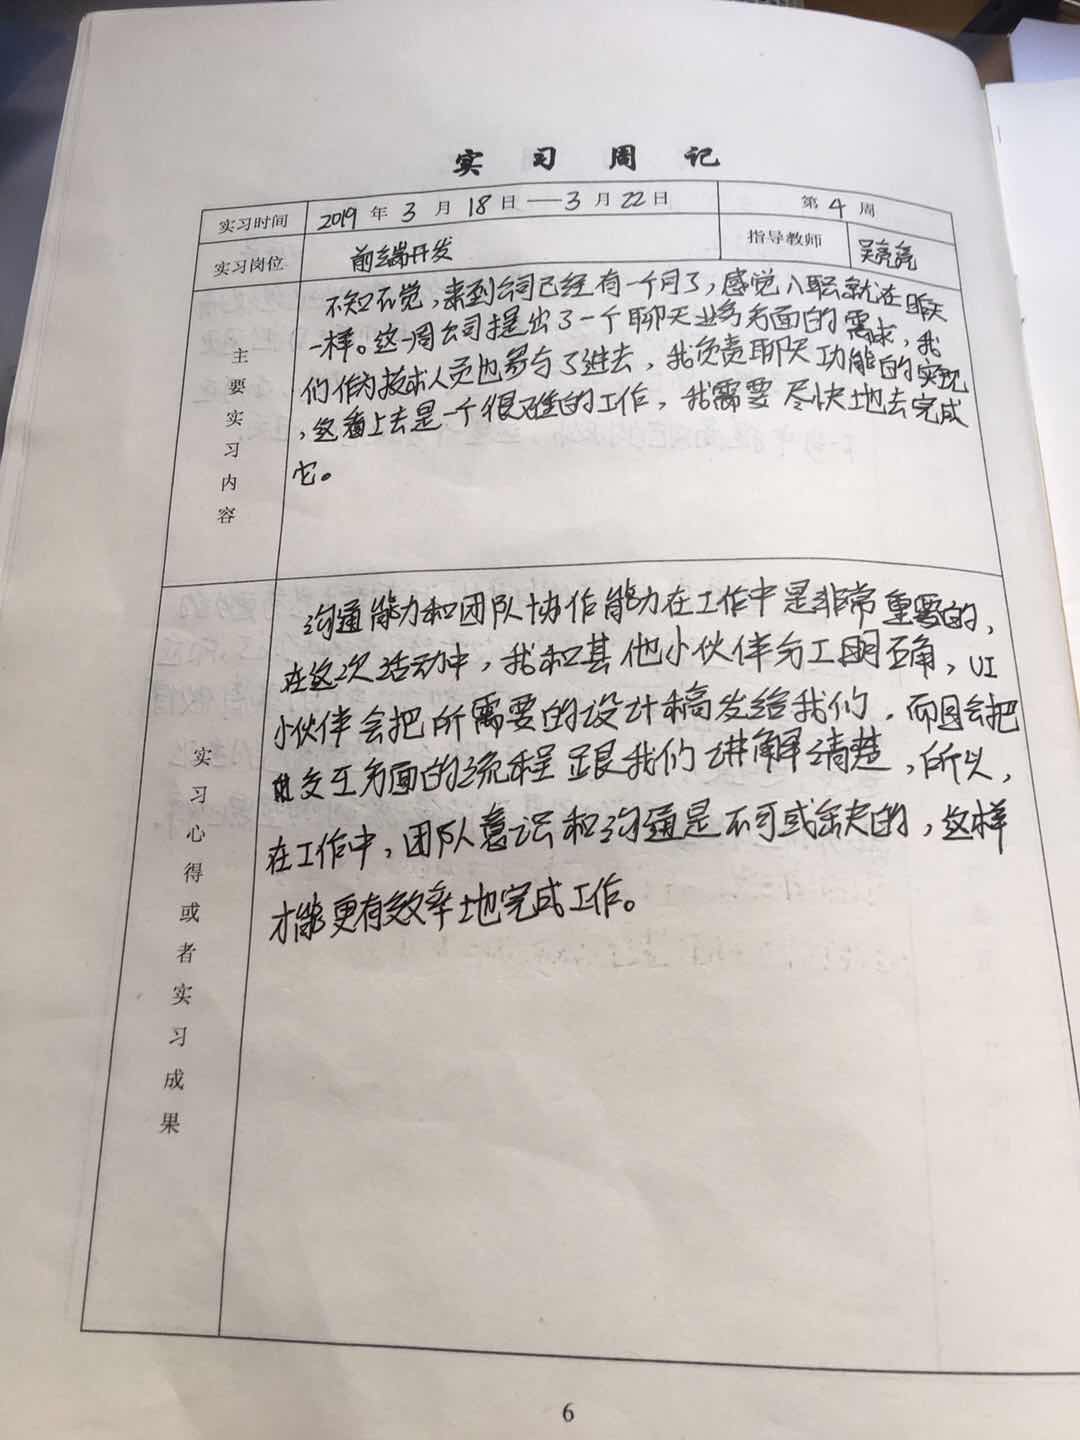 实习周记
实习时间 2019年3月18日—3月22日 第4周
实习岗位 前端开发 指导教师 吴亮亮
主要实习内容
不知不觉，来到公司已经有一个月了，感觉入职就在昨天
一样。这一周公司提出了一个聊天业务方面的需求，我
们作为技术人员也参与了进去，我负责聊天功能的实现
，这看上去是一个很难的工作，我需要尽快地去完成
它。
实习心得或者实习成果
沟通能力和团队协作能力在工作中是非常重要的，
在这次活动中，我和其他小伙伴分工明确，UI
小伙伴会把所需要的设计稿发给我们，而且会把
交互方面的流程跟我们讲解清楚，所以，
在工作中，团队意识和沟通是不可或缺的，这样
才能更有效率地完成工作。
6